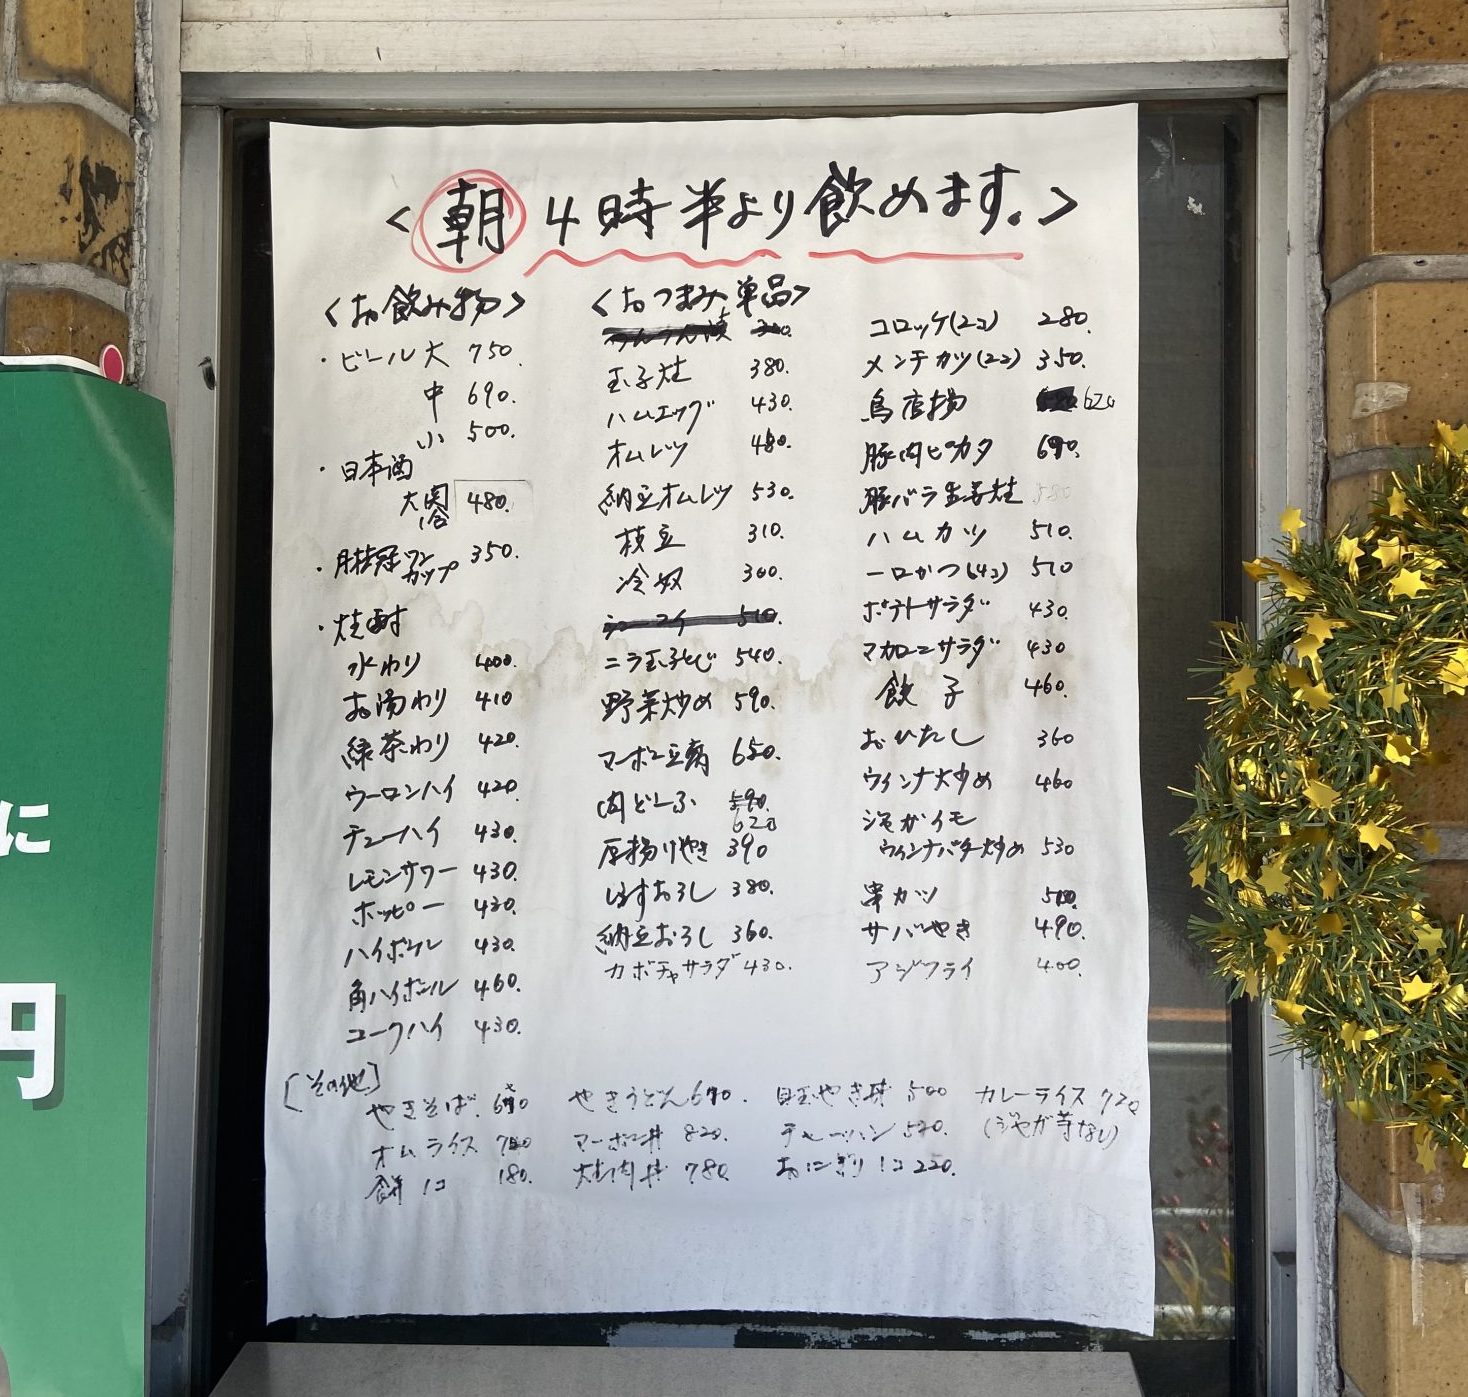 <朝 4時半より飲めます。>
<お飲み物>
・ビール大 750.
中 690.
小 500.
・日本酒
大関 1合 480.
・月桂冠ワンカップ 350.
・焼酎
水わり 400.
お湯わり 410
緑茶わり 420.
ウーロンハイ 420.
チューハイ 430.
レモンサワー 430.
ホッピー 430.
ハイボール 430.
角ハイボール 460.
コークハイ 430.
<おつまみ単品>
玉子焼 380.
ハムエッグ 430.
オムレツ 480.
納豆オムレツ 530.
枝豆 310.
冷奴 300.
ニラ玉子とじ 540.
野菜炒め 590.
マーボー豆腐 650.
肉どーふ 590. 620
厚揚げやき 390
しらすおろし 380.
納豆おろし 360.
カボチャサラダ 430.
コロッケ(2コ) 280.
メンチカツ(2コ) 350.
鳥唐揚 620
豚肉ピカタ 690.
豚バラ生姜焼 580
ハムカツ 510.
一口かつ(4コ) 510
ポテトサラダ 430.
マカロニサラダ 430
餃子 460.
おひたし 360
ウインナ炒め 460
ジャガイモ
ウインナバター炒め 530
串カツ
サバやき 490.
アジフライ 400.
[その他]
やきそば. 690
やきうどん 690.
目玉やき丼 500
カレーライス 720
(ジャガ芋なし)
オムライス
マーボー丼 820.
チャーハン 520.
餅1コ 180.
焼肉丼 780.
おにぎり1コ 220.
に
円